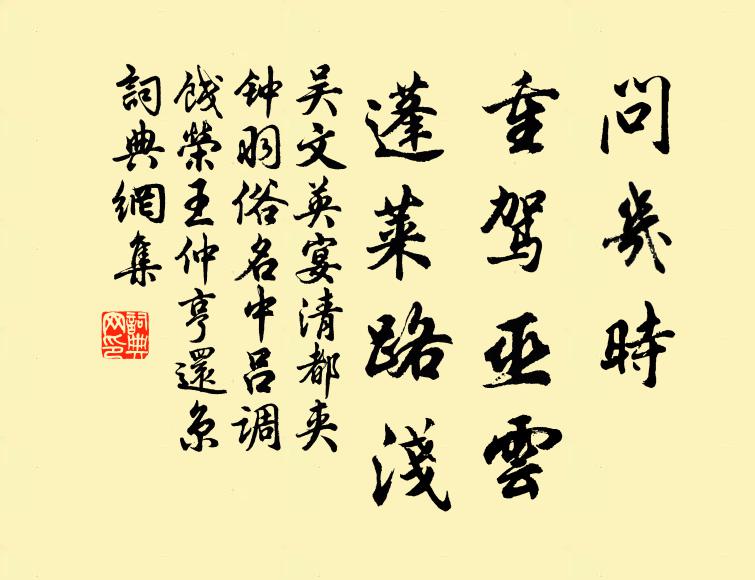 問幾時
重駕巫雲
蓬萊路淺
吴文英宴清都夹
钟羽俗名中吕调
饯榮王仲亨還京
詞典網集
詞典
网印